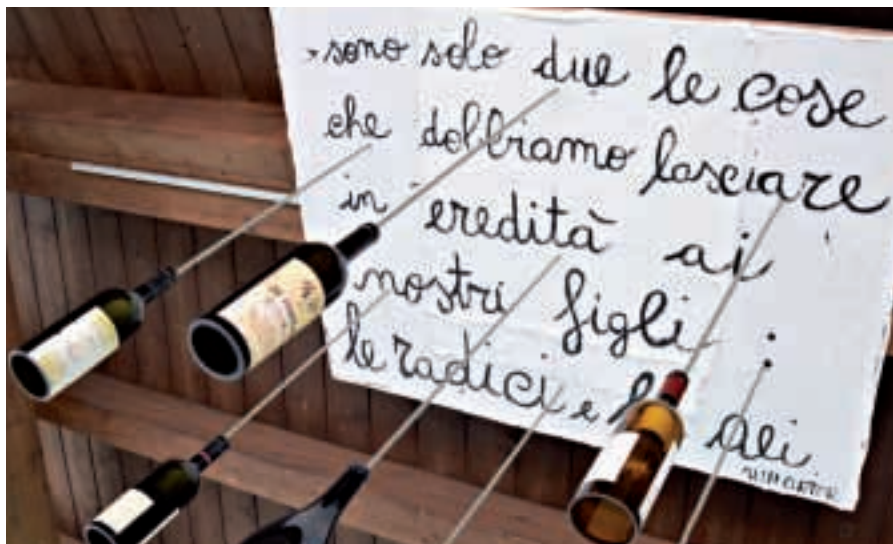 sono solo due le cose
che dobbiamo lasciare
in eredità ai
nostri figli :
le radici e le ali